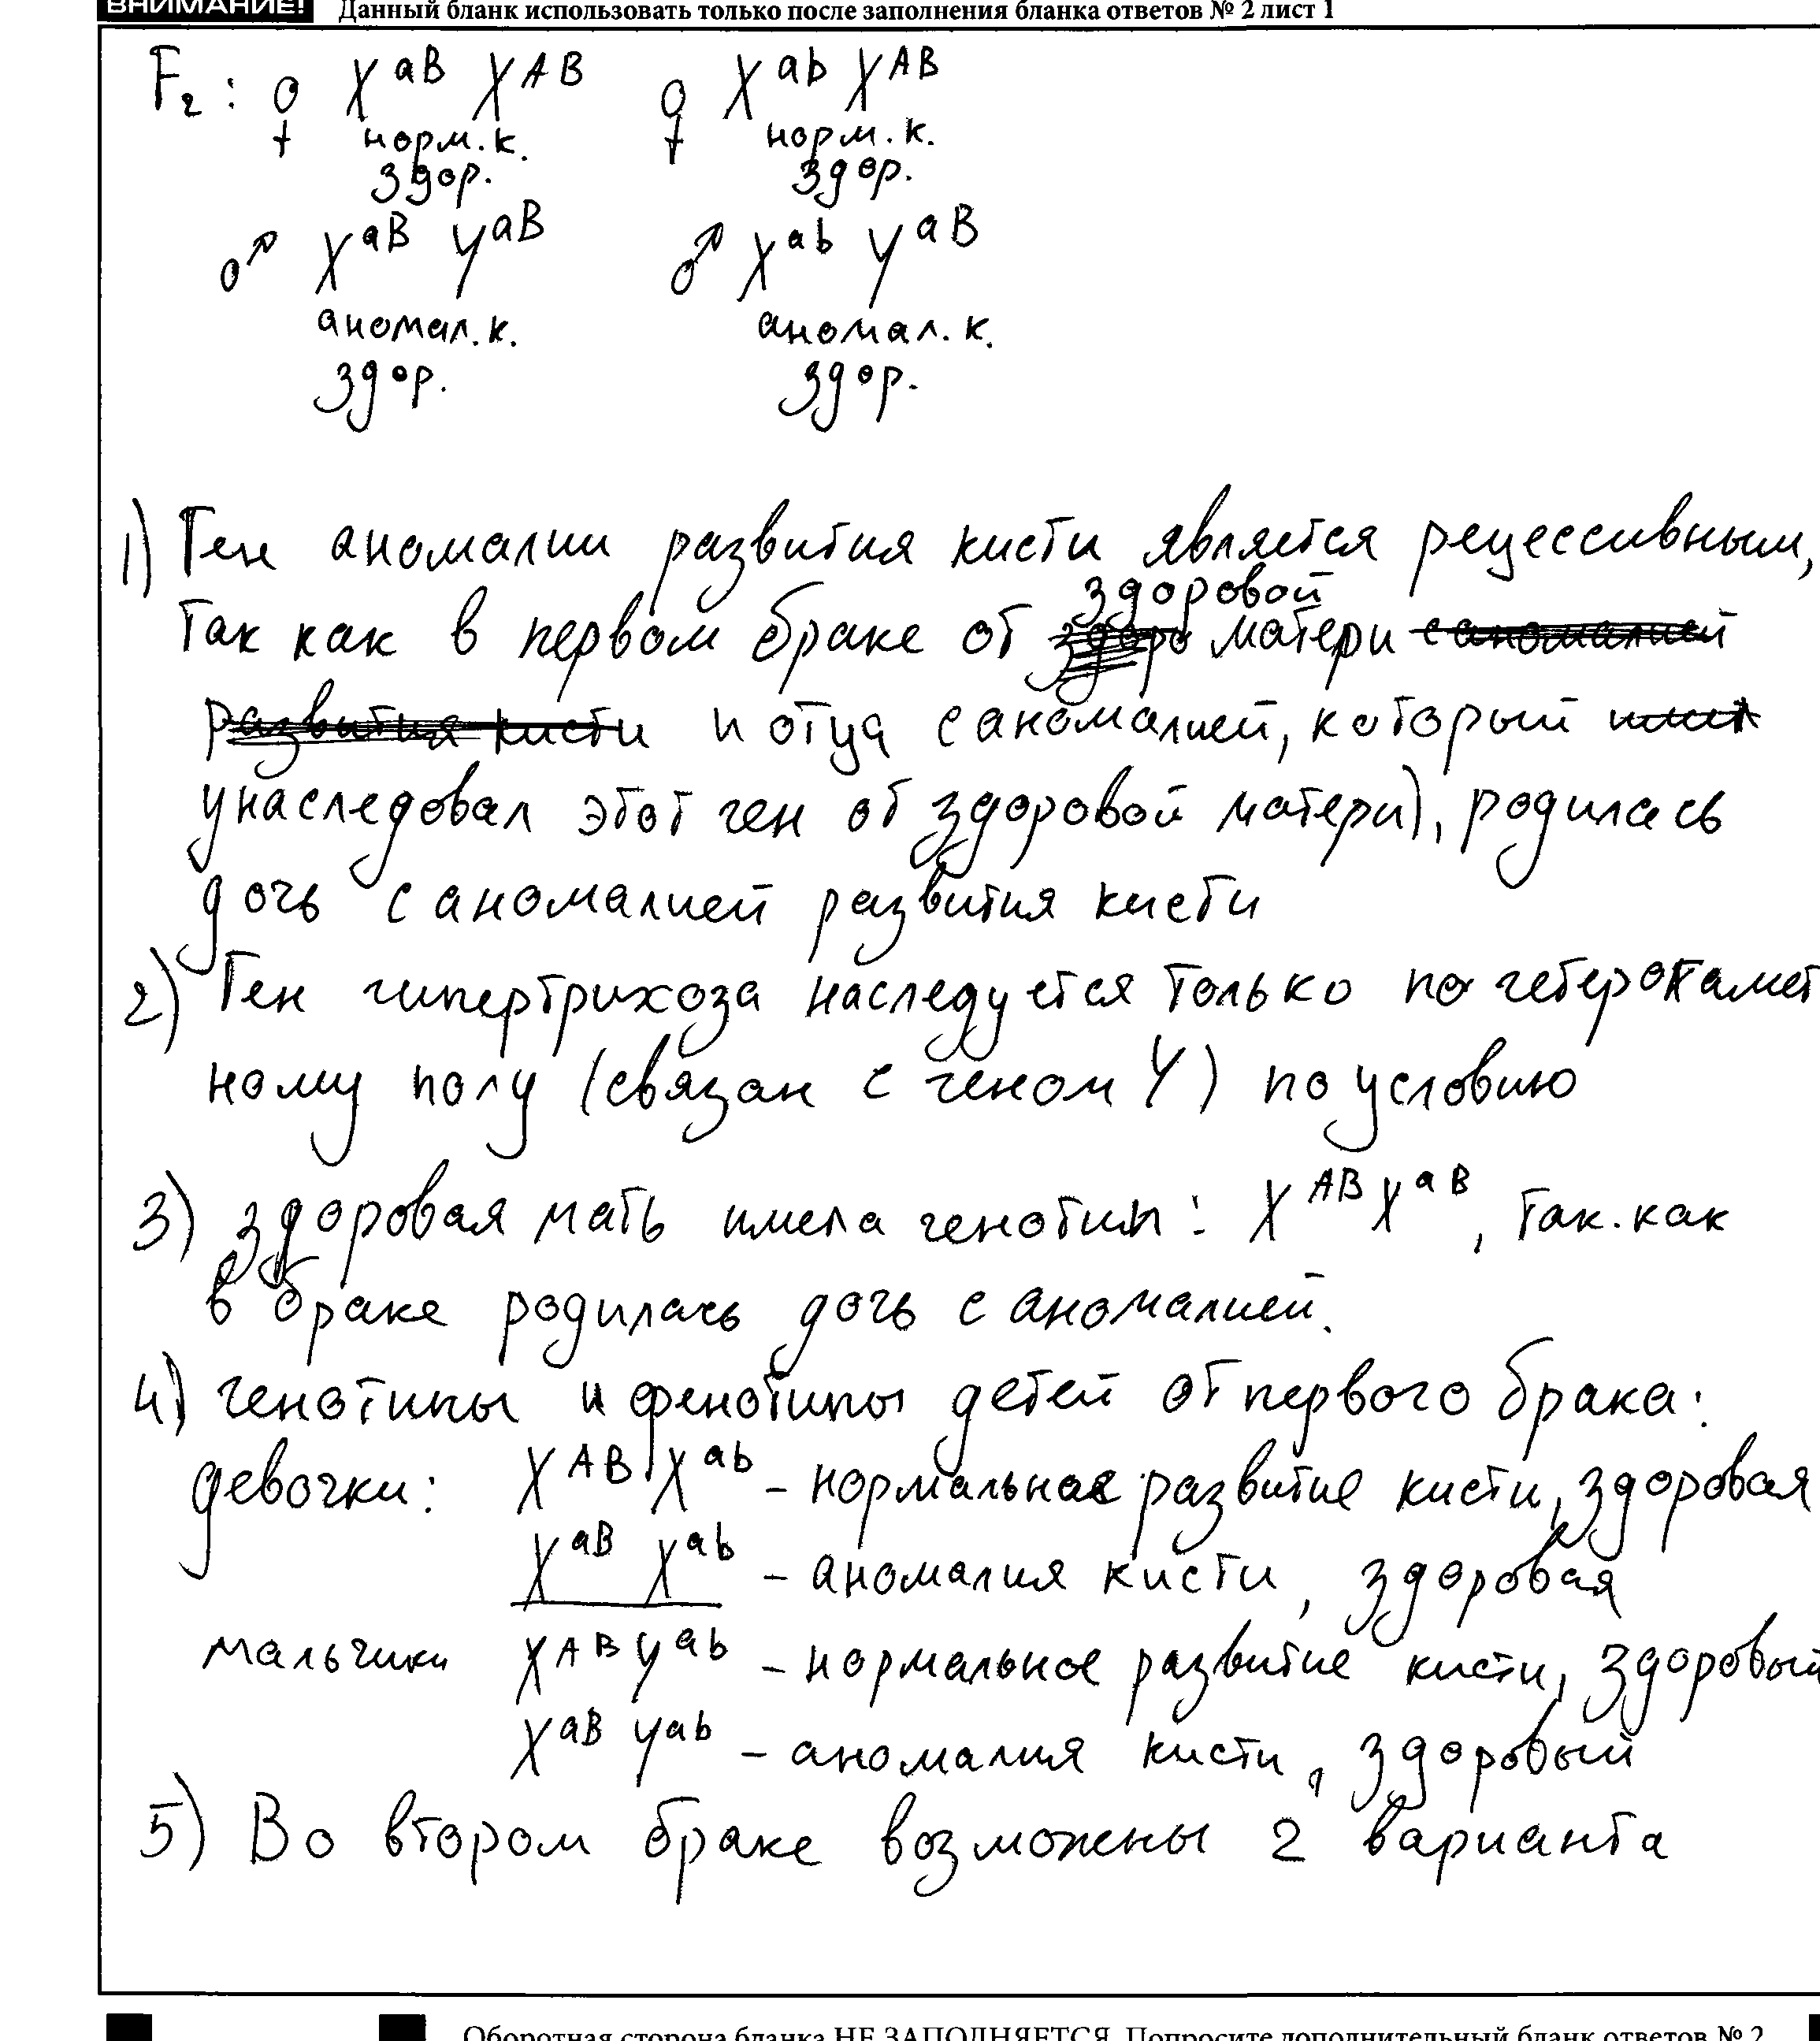 ВНИМАНИЕ! Данный бланк использовать только после заполнения бланка ответов № 2 лист 1
F₂: ♀ X^aB X^AB ♀ X^ab X^AB
норм. к. норм. к.
здор. здор.
♂ X^aB Y^aB ♂ X^ab Y^aB
аномал. к. аномал. к.
здор. здор.
1) Ген аномалии развития кисти является рецессивным,
здоровой
так как в первом браке от здоро матери с аномалией
развития кисти и отца с аномалией, который
унаследовал этот ген от здоровой матери), родилась
дочь с аномалией развития кисти
2) Ген гипертрихоза наследуется только по гетерогамет
ному полу (связан с геном Y) по условию
3) здоровая мать имела генотип: X^AB X^aB, так.как
в браке родилась дочь с аномалией.
4) генотипы и фенотипы детей от первого брака:
девочки: X^AB X^ab – нормальное развитие кисти, здоровая
X^aB X^ab – аномалия кисти, здоровая
мальчики X^AB Y^ab – нормальное развитие кисти, здоровый
X^aB Y^ab – аномалия кисти, здоровый
5) Во втором браке возможны 2 варианта
Оборотная сторона бланка НЕ ЗАПОЛНЯЕТСЯ. Попросите дополнительный бланк ответов № 2